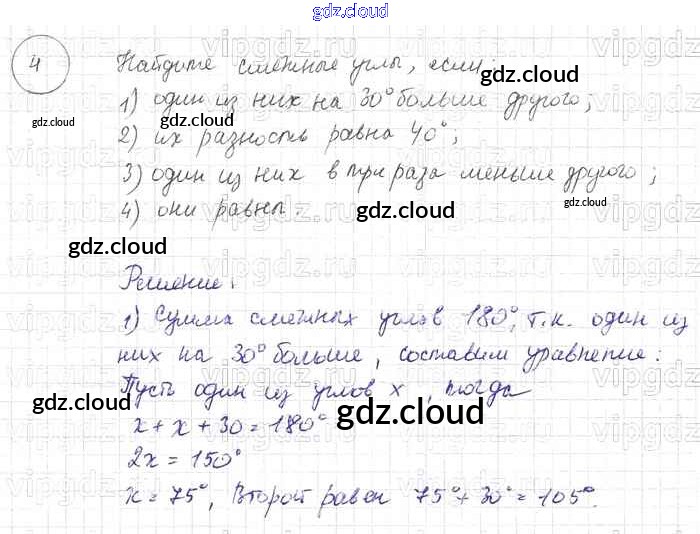 gdz.cloud
4 Найдите смежные углы, если:
gdz.cloud
1) один из них на 30° больше другого;
gdz.cloud
gdz.cloud
2) их разность равна 40°;
3) один из них в три раза меньше другого;
gdz.cloud
4) они равны.
gdz.cloud
gdz.cloud
Решение:
1) Сумма смежных углов 180°, т.к. один из
них на 30° больше, составим уравнение:
Пусть один из углов x, тогда
gdz.cloud
gdz.cloud
x + x + 30 = 180°
2x = 150°
x = 75°, Второй равен 75° + 30° = 105°.